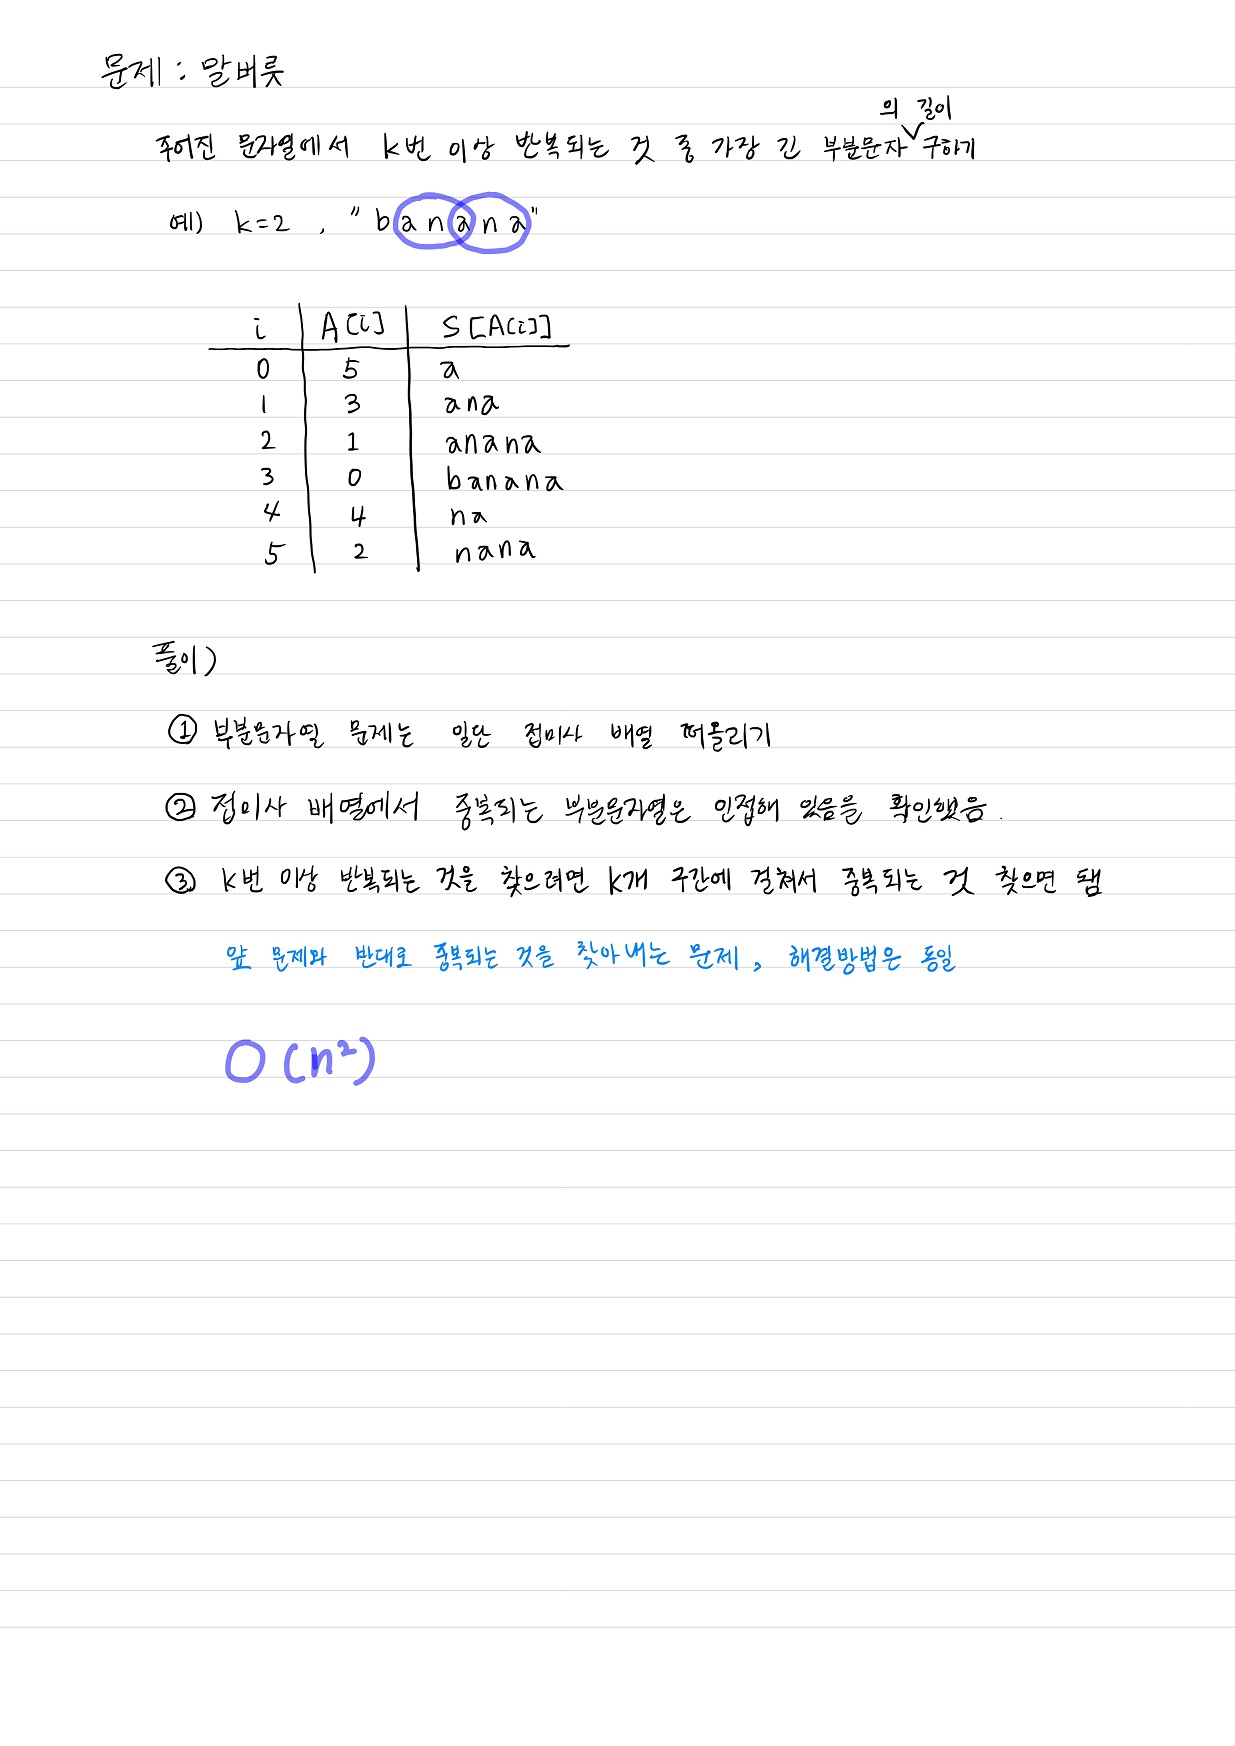 문제 : 말버릇
의 길이
주어진 문자열에서 k번 이상 반복되는 것 중 가장 긴 부분문자 구하기
예) k=2 , "banana"
i A[i] S[A[i]]
0 5 a
1 3 ana
2 1 anana
3 0 banana
4 4 na
5 2 nana
풀이)
① 부분문자열 문제는 일단 접미사 배열 떠올리기
② 접미사 배열에서 중복되는 부분문자열은 인접해 있음을 확인했음.
③ k번 이상 반복되는 것을 찾으려면 k개 구간에 걸쳐서 중복되는 것 찾으면 됨
앞 문제와 반대로 중복되는 것을 찾아내는 문제, 해결방법은 동일
O(n²)